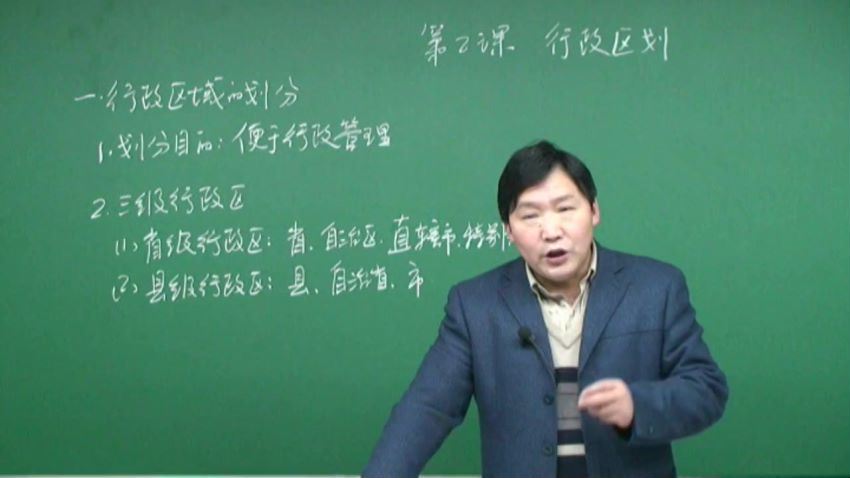 第2课 行政区划
一.行政区域的划分
1.划分目的：便于行政管理
2.三级行政区
(1)省级行政区：省、自治区、直辖市、特别
(2)县级行政区：县、自治省、市